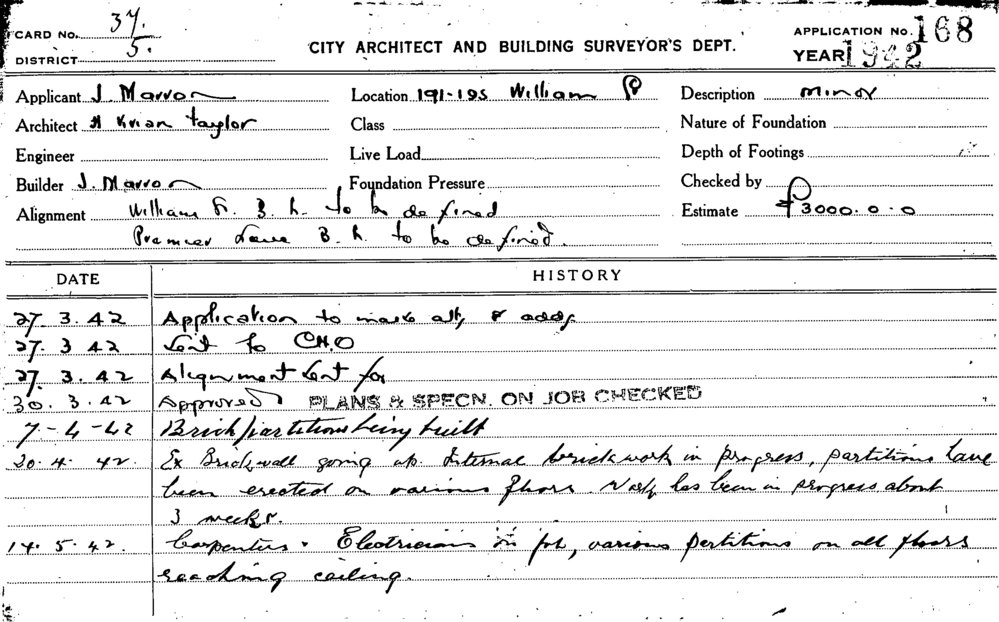 CARD No. 37.
DISTRICT 5.
CITY ARCHITECT AND BUILDING SURVEYOR'S DEPT.
APPLICATION No. 168
YEAR 1942
Applicant J. Marron Location 191-195 William Description minor
Architect Taylor Class Nature of Foundation
Engineer Live Load Depth of Footings
Builder J. Marron Foundation Pressure Checked by
Alignment William St. B. L. to be defined Estimate £3000.0.0
Premier Lane B. L. to be defined.
DATE HISTORY
27. 3. 42 Application to make alts & adds
27. 3 42 Sent to CHO
27. 3. 42 Alignment Sent for
30. 3. 42 Approved PLANS & SPECN. ON JOB CHECKED
7-4-42 Brick partitions being built
30. 4. 42. Ex Brickwall going up. Internal brickwork in progress, partitions have
been erected on various floors. Work has been in progress about
3 weeks.
14. 5. 42. Carpenters & Electricians on job, various partitions on all floors
reaching ceiling.